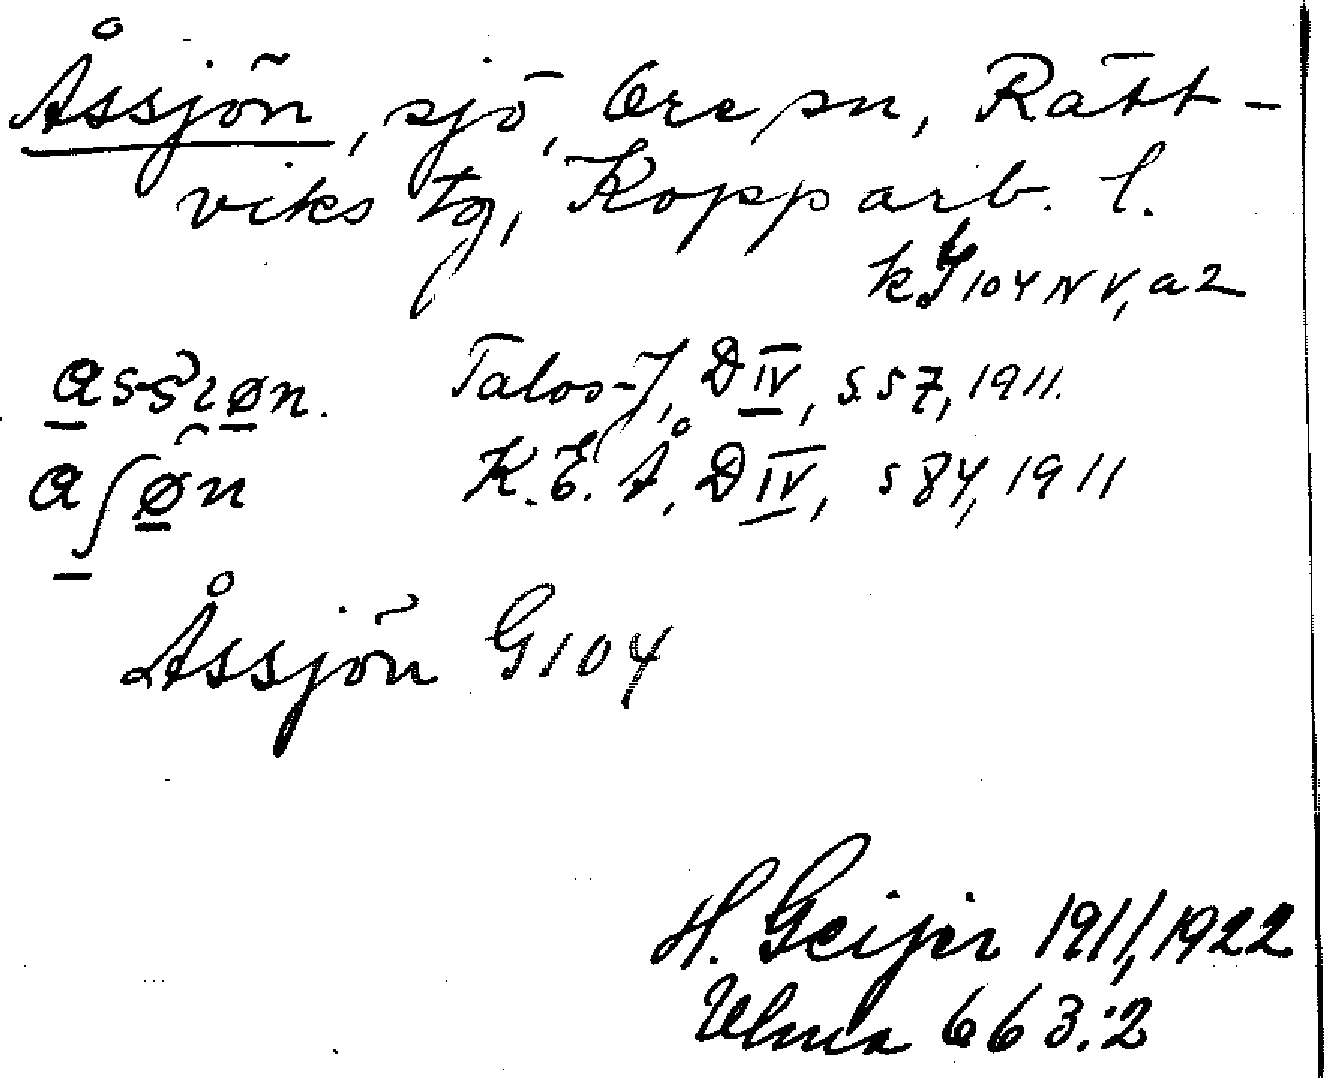 Åssjön, sjö, Ore sn, Rätt-
viks tg, Kopparb. l.
k 104 NV, a2
Talos-J, D IV, s 57, 1911.
aſøn K. E. Å, D IV, s 84, 1911
Åssjön G104
H. Geijer 1911, 1922
Ulma 663:2